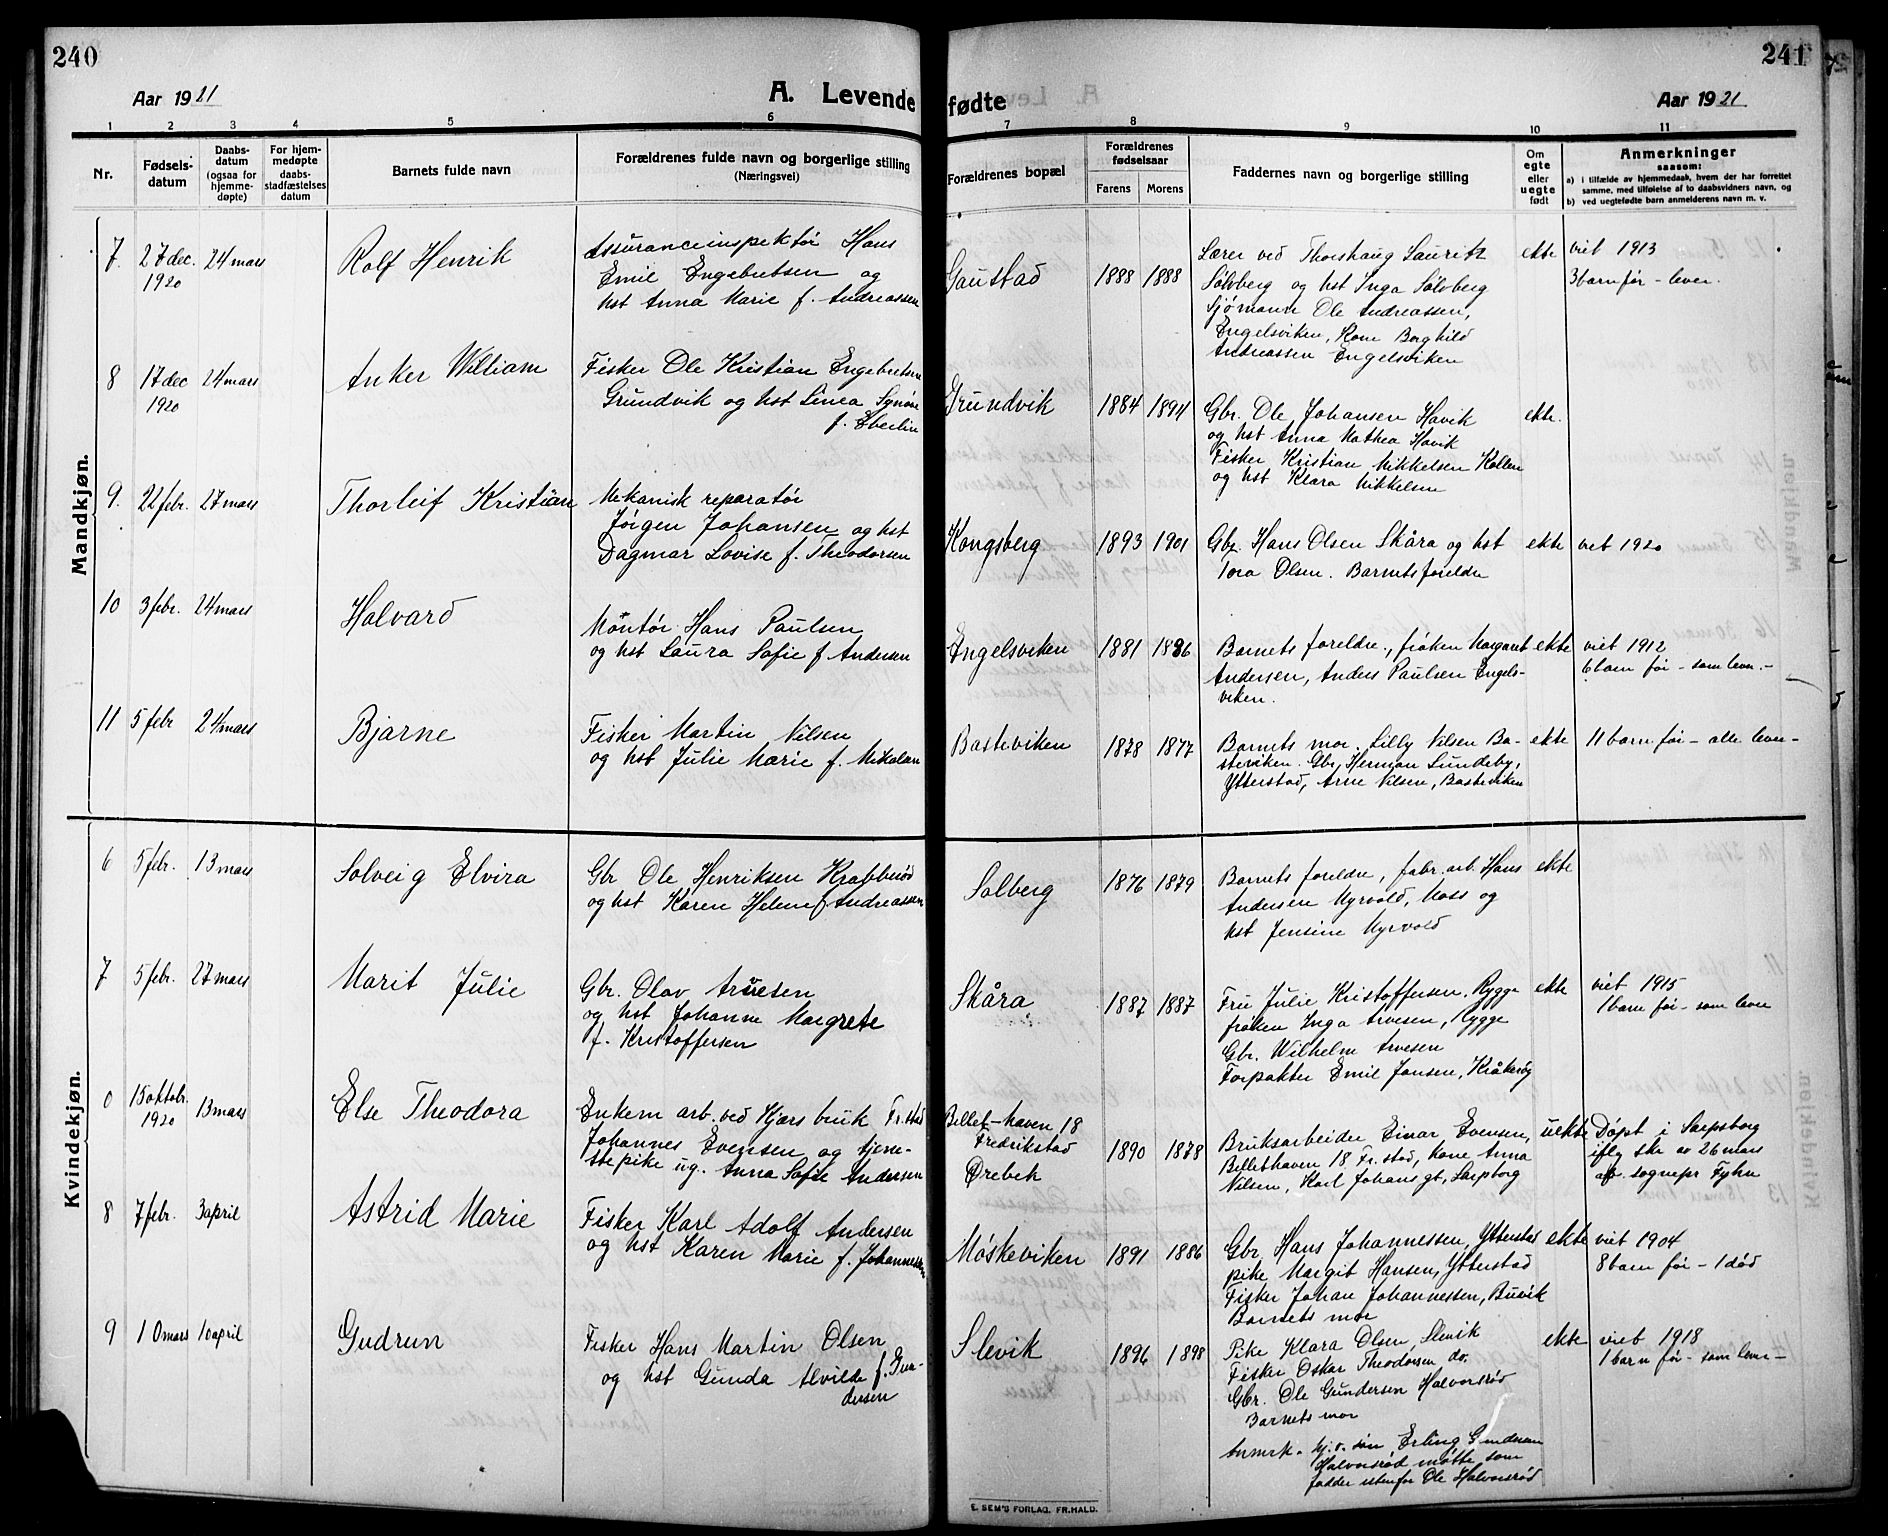 240
Aar 1921
A. Levende
1 2 3 4 5 6
Nr.
Fødsels-
datum
Daabs-
datum
(ogsaa for
hjemme-
døpte)
For hjem-
medøpte
daabs-
stadfæstelses
datum
Barnets fulde navn
Forældrenes fulde navn og borgerlige stilling
(Næringsvei)
241
fødte
Aar 1921
7 8 9 10 11
Forældrenes bopæl
Forældrenes
fødselsaar
Farens Morens
Faddernes navn og borgerlige stilling
Om
egte
eller
uegte
født
Anmerkninger
saasom:
a) i tilfælde av hjemmedaab, hvem der har forrettet
samme, med tilføielse af to daabsvidners navn, og
b) ved uegtefødte barn anmelderens navn m. v.
Mandkjøn.
7. 27 dec. 24 mars Rolf Henrik Assuranceinspektør Hans
1920 Emil Engebretsen og
hst Anna Marie f. Andreassen
Gaustad 1888 1888 Lærer ved Thorshaug Lauritz ekte viet 1913
Sølvberg og hst Inga Sølvberg 3 barn før - lever.
Sjømann Ole Andreassen,
Engelsviken, Kone Borghild
Andreassen Engelsviken
8 17 dec 24 mars Anker William Fisker Ole Kristian Engebretsen
1920 Grundvik og hst Linea Synøve
f. Eberlin
Grundvik 1884 1894 Gbr. Ole Johansen Havik ekte.
og hst Anna Mathea Havik
Fisker Kristian Mikkelsen Kollen
og hst Klara Mikkelsen
9. 22 febr. 27 mars Thorleif Kristian Mekanisk reparatør
Jørgen Johansen og hst
Dagmar Lovise f. Theodorsen
Kongsberg 1893 1901 Gbr. Hans Olsen Skåra og hst ekte viet 1920
Tora Olsen. Barnets foreldre
10 3 febr. 24 mars Halvard Montør Hans Paulsen
og hst Laura Sofie f Andersen
Engelsviken 1881 1886 Barnets foreldre, frøken Margaret ekte viet 1912
Andersen, Anders Paulsen Engels- 6 barn før - som lever.-
viken.
11 5 febr 24 mars Bjarne Fisker Martin Nilsen
og hst Julie Marie f. Nikolaisen
Basteviken 1878 1877 Barnets mor. Lilly Nilsen Ba- ekte 11 barn før - alle lever-
steviken. Gbr. Herman Lundeby,
Ytterstad, Arne Nilsen, Basteviken
Kvindekjøn.
6 5 febr. 13 mars Solveig Elvira Gbr Ole Henriksen Krabberød
og hst Karen Helene f Andreassen
Solberg 1876 1879 Barnets foreldre, fabr. arb. Hans ekte
Andersen Myrvold, Moss og
hst Jensine Myrvold
7 5 febr. 27 mars Marit Julie Gbr. Olav Arvesen
og hst Johanne Margrete
f. Kristoffersen
Skåra 1887 1887 Fru Julie Kristoffersen, Rygge ekte viet 1915
frøken Inga Arvesen, Rygge 1 barn før - som lever
Gbr. Wilhelm Arvesen
Forpakter Emil Jansen, Kråkerøy
0 15 oktobr. 13 mars Else Theodora Enkem arb. ved Kjærs bruk Fr.stad
1920 Johannes Evensen og tjene-
stepike ug. Anna Sofie Andersen
Billet-haven 18
Fredrikstad
Ørebek 1890 1878 Bruksarbeider Einar Evensen, uekte Døpt i Sarpsborg
Billethaven 18 Fr.stad, kone Anna iflg skr av 26 mars
Nilsen, Karl Johans gt, Sarpborg af sognepr Fyhn
8 7 febr. 3 april Astrid Marie Fisker Karl Adolf Andersen
og hst Karen Marie f. Johannessen
Møskeviken 1891 1886 Gbr. Hans Johannessen, Ytterstad ekte viet 1904
pike Margit Hansen, Ytterstad 8 barn før - 1 død
Fisker Johan Johannessen, Buvik
Barnets mor
9 10 mars 10 april Gudrun Fisker Hans Martin Olsen
og hst Gunda Alvilde f. Gun-
dersen
Slevik 1896 1898 Pike Klara Olsen, Slevik ekte viet 1918
Fisker Oskar Theodorsen do. 1 barn før - som lever-
Gbr. Ole Gundersen Halvorsrød
Barnets mor
Anmrk. hj.v. søn Erling Gundersen
Halvorsrød møtte som
fadder istenfor Ole Halvorsrød
E. SEM'S FORLAG, FR.HALD.